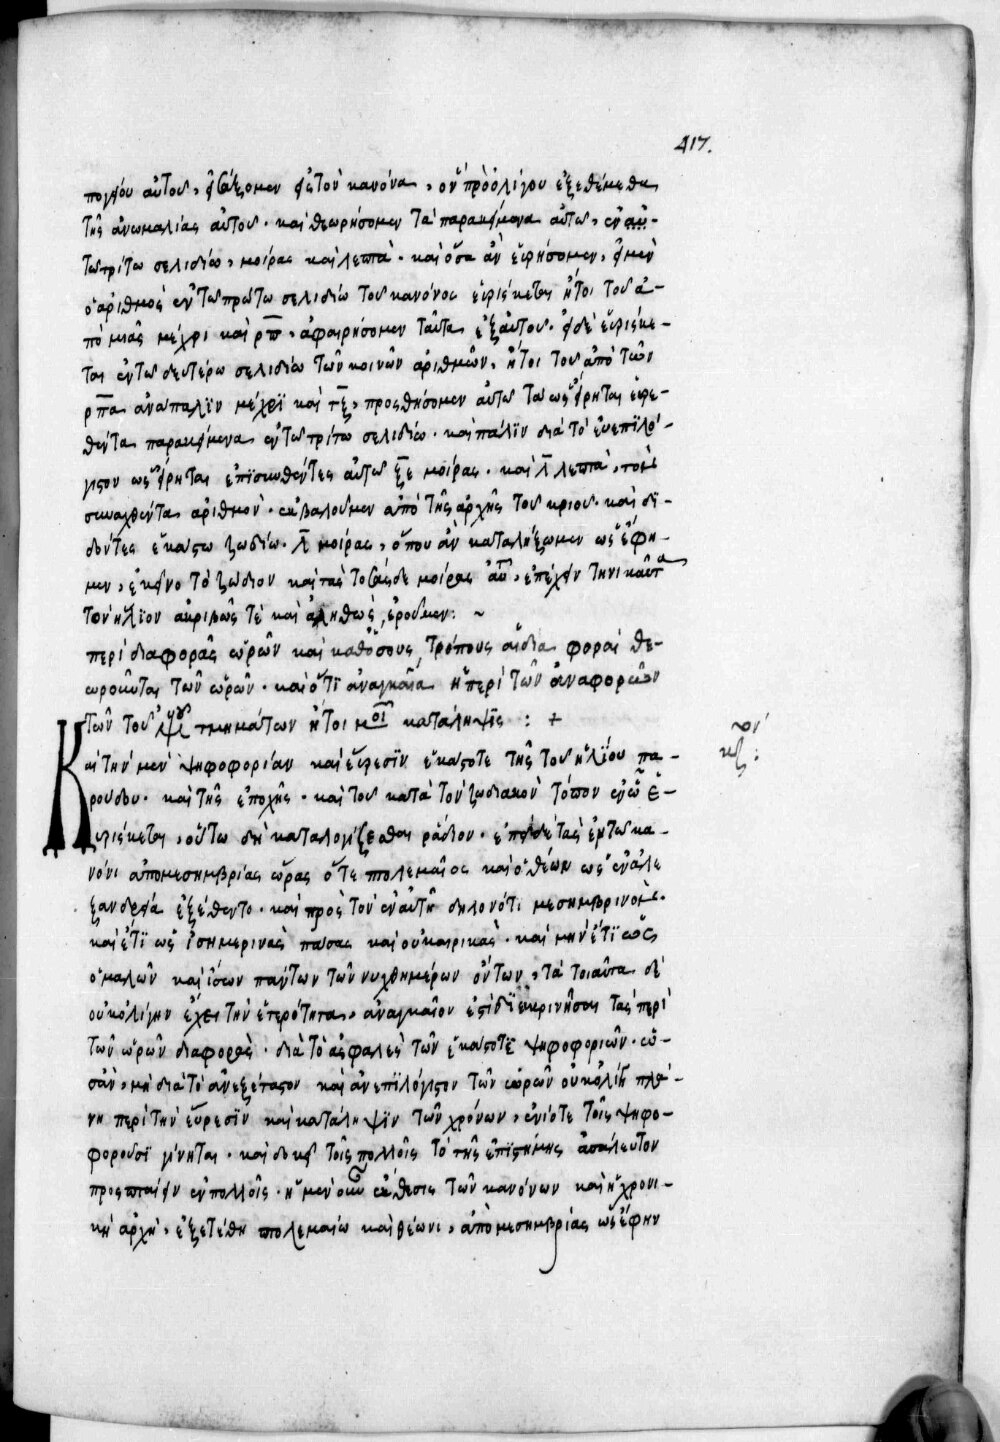 417.
πογείου αὐτοῦ, εἰσάξομεν εἰς τὸν κανόνα, ὃν πρὸ ὀλίγου ἐξεθέμεθα
τῆς ἀνωμαλίας αὐτοῦ· καὶ θεωρήσομεν τὰ παρακείμενα αὐτῶ, ἐν αὐ-
τῶ τρίτω σελιδίω, μοίρας καὶ λεπτὰ· καὶ ὅσα ἂν εὑρήσομεν, εἰ μὲν
ὁ ἀριθμὸς ἐν τῶ πρώτω σελιδίω τοῦ κανόνος εὑρίσκεται ἤτοι τοῦ ἀ-
πὸ μιᾶς μέχρι καὶ ρπ, ἀφαιρήσομεν ταῦτα ἐξ αὐτοῦ· εἰ δὲ εὑρίσκε-
ται ἐν τῶ δευτέρω σελιδίω τῶν κοινῶν ἀριθμῶν, ἤτοι τοῦ ἀπὸ τῶν
ρπα ἀνάπαλϊν μέχρϊ καὶ τξ, προσθήσομεν αὐτῶ τὰ ὡς εἴρηται εὑρε-
θέντα παρακείμενα ἐν τῶ τρίτω σελιδίω· καὶ πάλϊν διὰ τὸ εὐεπϊλό-
γιστον ὡς εἴρηται ἐπϊσυνθέντες αὐτῶ ξε μοίρας· καὶ λ λεπτὰ, τὸν
συναχθέντα ἀριθμὸν· ἐκβαλοῦμεν ἀπὸ τῆς ἀρχῆς τοῦ κριοῦ· καὶ δι-
δόντες ἑκάστω ζωδίω· λ μοίρας, ὅπου ἂν καταλήξωμεν ὡς ἔφη-
μεν, ἐκεῖνο τὸ ζώδιον καὶ τὰς τοσάσδε μοίρας αὐτοῦ, ἐπέχειν τηνικαῦτα
τὸν ἥλϊον ἀκριβῶς τὲ καὶ ἀληθῶς, ἐροῦμεν: ~
περὶ διαφορᾶς ὡρῶν καὶ καθ' ὅσους τρόπους αἱ διαφοραὶ θε-
ωροῦνται τῶν ὡρῶν· καὶ ὅτϊ ἀναγκαία ἡ περὶ τῶν ἀναφορῶν
τῶν τοῦ τμημάτων ἤτοι μοι κατάληψϊς : +
κζ:
Καὶ τὴν μὲν ψηφοφορίαν καὶ εὕρεσϊν ἑκάστοτε τῆς τοῦ ἡλίου πα-
ρόδου· καὶ τῆς ἐποχῆς· καὶ τοῦ κατὰ τὸν ζωδιακὸν τόπον ἐν ὧ εὑ-
ρίσκεται, οὕτω δὴ καταλογίζεσθαι ράδιον· ἐπεὶ δὲ τὰς ἐν τῶ κα-
νόνι ἀπομεσημβρίας ὥρας ὅ τε πτολεμαῖος καὶ ὁ θέων ὡς ἐν ἀλε
ξανδρεία ἐξέθεντο· καὶ πρὸς τὸν ἐν αὐτῆ δηλονότι μεσημβρινὸν·
καὶ ἔτϊ ὡς ἰσημερινὰς πάσας καὶ οὐ καιρικὰς· καὶ μὴν ἔτϊ ὡς
ὁμαλῶν καὶ ἴσων πάντων τῶν νυχθημέρων ὄντων, τὰ τοιαῦτα δὲ
οὐκ ὀλίγην ἔχει τὴν ἑτερότητα, ἀναγκαῖον ἐστὶ διευκρινῆσαι τὰς περὶ
τῶν ὡρῶν διαφορὰς· διὰ τὸ ἀσφαλὲς τῶν ἑκάστοτε ψηφοφοριῶν· ὡ-
σὰν, μὴ διὰ τὸ ἀνεξέταστον καὶ ἀνεπϊλόγιστον τῶν ὡρῶν οὐκ ὀλίγη πλά-
νη περὶ τὴν εὕρεσϊν καὶ κατάληψϊν τῶν χρόνων, ἐνίοτε τοῖς ψηφο-
φοροῦσϊ γίνηται· καὶ δοκεῖ τοῖς πολλοῖς τὸ τῆς ἐπϊστήμης ἀσάλευτον
προσπταίειν ἐν πολλοῖς· ἡ μὲν οὖν ἔκθεσις τῶν κανόνων καὶ ἡ χρονι-
κὴ ἀρχὴ, ἐξετέθη πτολεμαίω καὶ θέωνι, ἀπὸ μεσημβρίας ὡς ἔφην